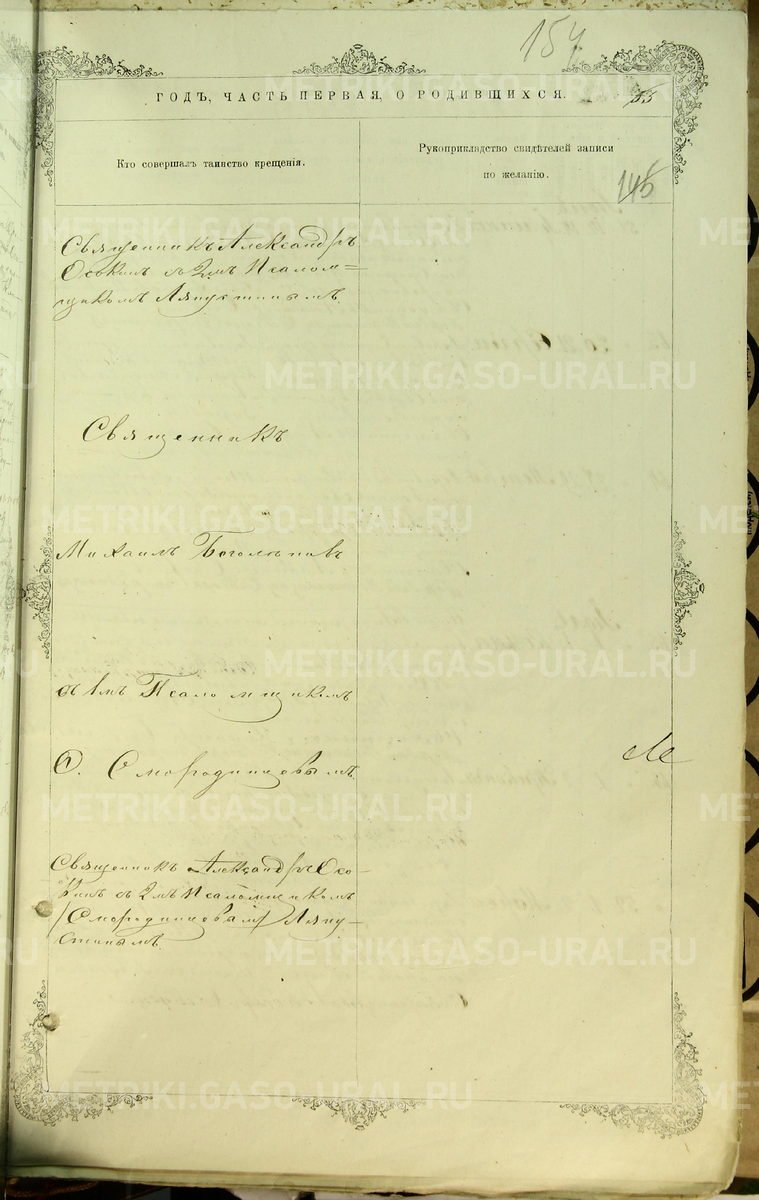 154
ГОДЪ, ЧАСТЬ ПЕРВАЯ, О РОДИВШИХСЯ.
53
Кто совершалъ таинство крещенія.
Рукоприкладство свидѣтелей записи
по желанію.
145
Священникъ Александръ
Осокинъ съ 2мъ Псалом=
щикомъ Ляпустинымъ.
Священникъ
Михаилъ Боголѣповъ
съ 1мъ Псаломщикомъ
Смородинцовымъ.
Священникъ Александръ Осо-
кинъ съ 2мъ Псаломщикомъ
(Смородинцовымъ) Ляпу-
стинымъ.
METRIKI.GASO-URAL.RU